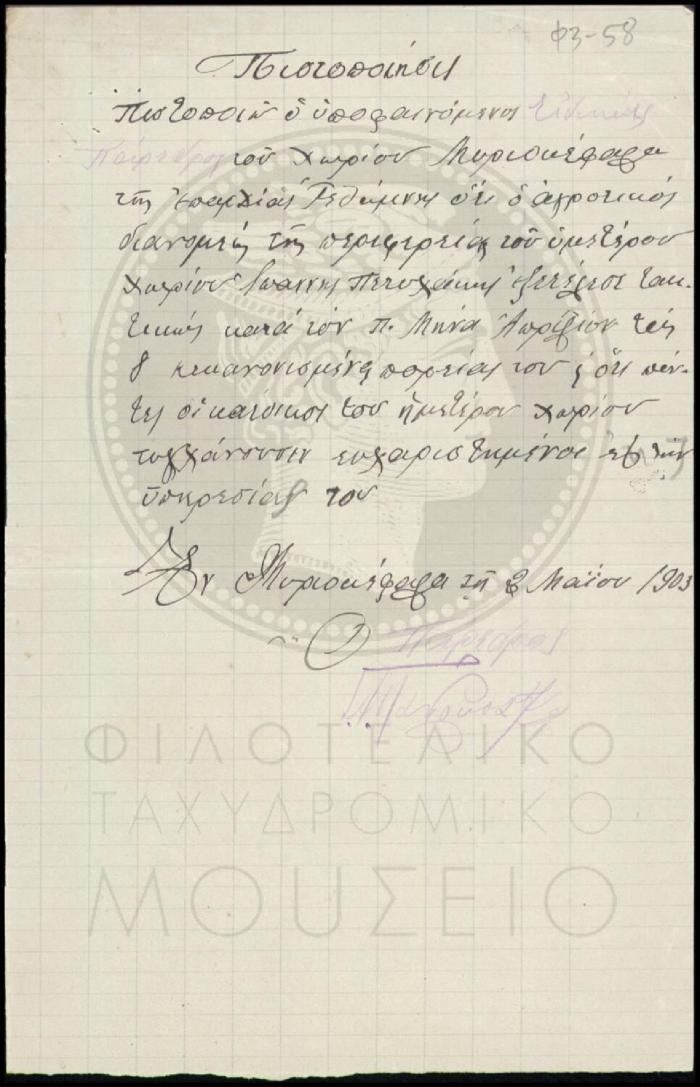 Φ3-58
Πιστοποίησις
Πιστοποιῶ ὁ ὑποφαινόμενος εἰδικὸς
Πάρεδρος τοῦ χωρίου Μυριοκέφαλα
τῆς ἐπαρχίας Ρεθύμνης ὅτι ὁ ἀγροτικὸς
διανομεὺς τῆς περιφερείας τοῦ ἡμετέρου
χωρίου Ἰωάννης Πετυχάκης ἐξετέλεσε τακ-
τικῶς κατὰ τὸν π. Μῆνα Ἀπρίλιον τὰς
8 κεκανονισμένας πορείας του & ὅτι πάν-
τες οἱ κάτοικοι τοῦ ἡμετέρου χωρίου
τυγχάνουσιν εὐχαριστημένοι ἐκ τῆς
ὑπηρεσίας του
Ἐν Μυριοκέφαλα τῇ 2 Μαΐου 1903
Ὁ Πάρεδρος
ΦΙΛΟΤΕΛΙΚΟ
ΤΑΧΥΔΡΟΜΙΚΟ
ΜΟΥΣΕΙΟ